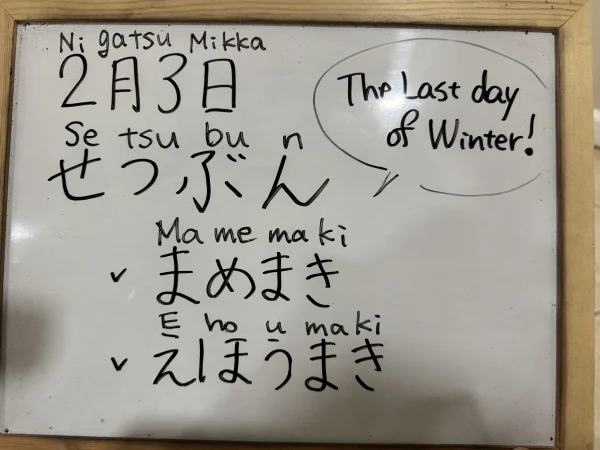 Ni gatsu Mikka
2月3日
Se tsu bu n
せつぶん
The Last day
of Winter!
Ma me ma ki
✓ まめまき
E ho u ma ki
✓ えほうまき